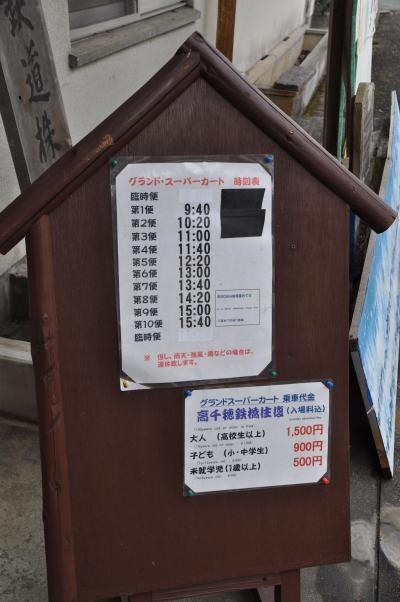 鉄道株
グランド・スーパーカート 時刻表
臨時便
第1便 9:40
第2便 10:20
第3便 11:00
第4便 11:40
第5便 12:20
第6便 13:00
第7便 13:40
第8便 14:20
第9便 15:00
第10便 15:40
臨時便
※ 但し、雨天・強風・雷などの場合は、
運休致します。
グランドスーパーカート 乗車代金
高千穂鉄橋往復(入場料込)
大人 (高校生以上) 1,500円
子ども (小・中学生) 900円
未就学児(1歳以上) 500円